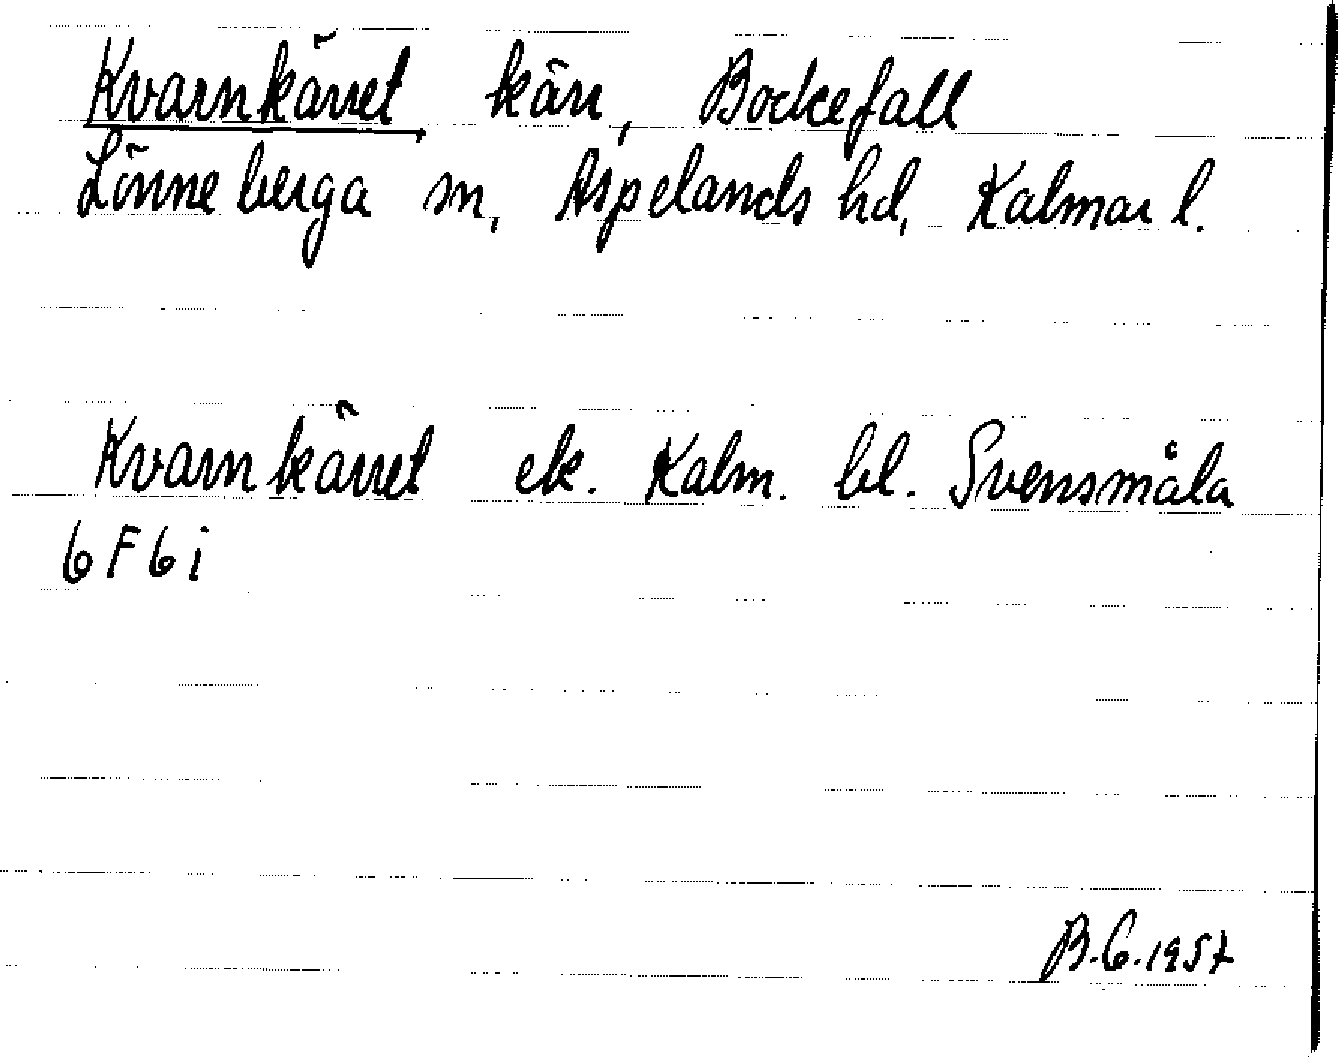 Kvarnkärret kärr, Bockefall
Lönneberga sn, Aspelands hd, Kalmar l.
Kvarnkärret ek. Kalm. bl. Svensmåla
6F6i
B.G.1957